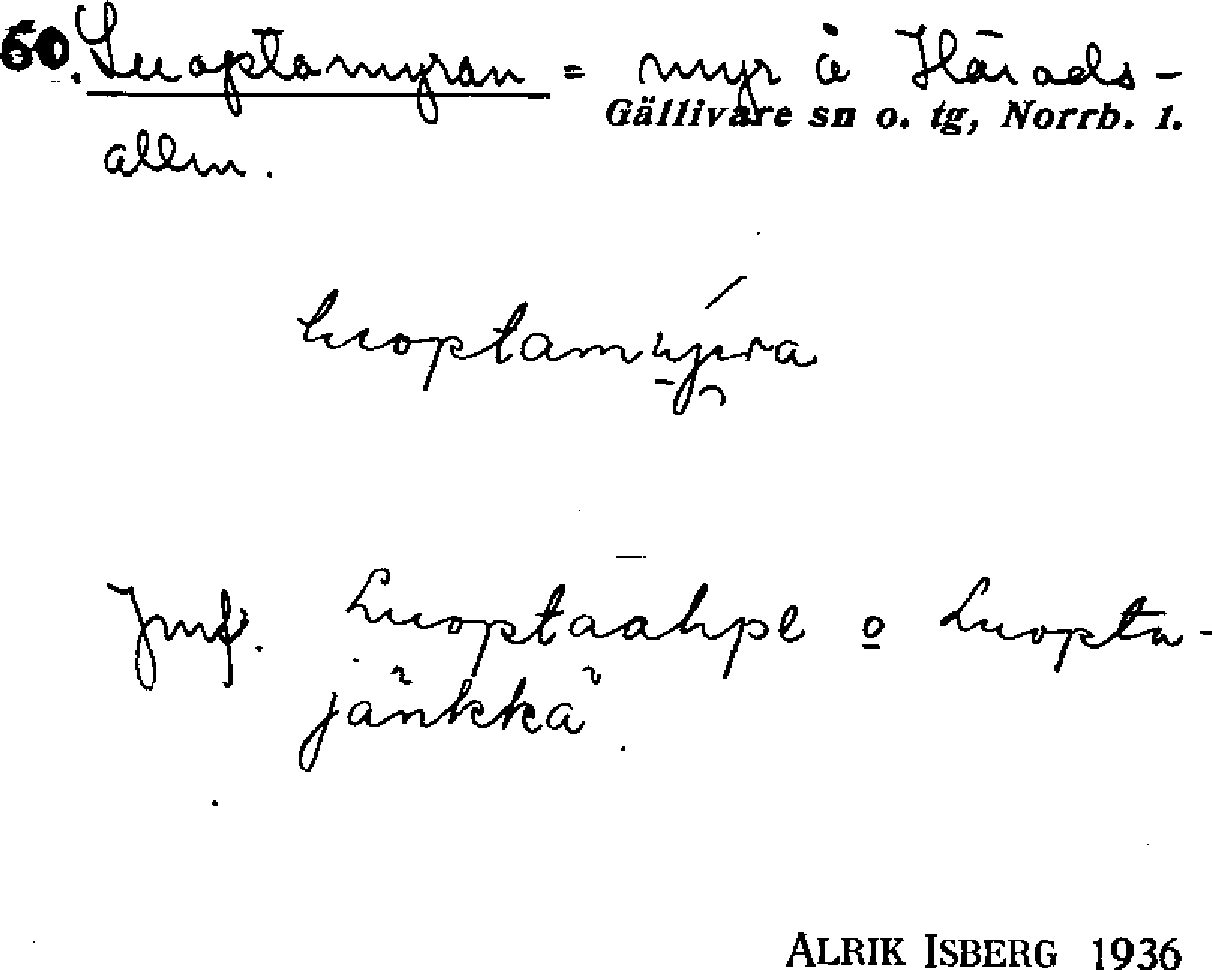 60. Luoptamyran = myr å Härads-
Gällivare sn o. tg, Norrb. l.
allm.
luoptamyra
Jmf. Luoptaahpe o Luopta-
jänkkä.
ALRIK ISBERG 1936